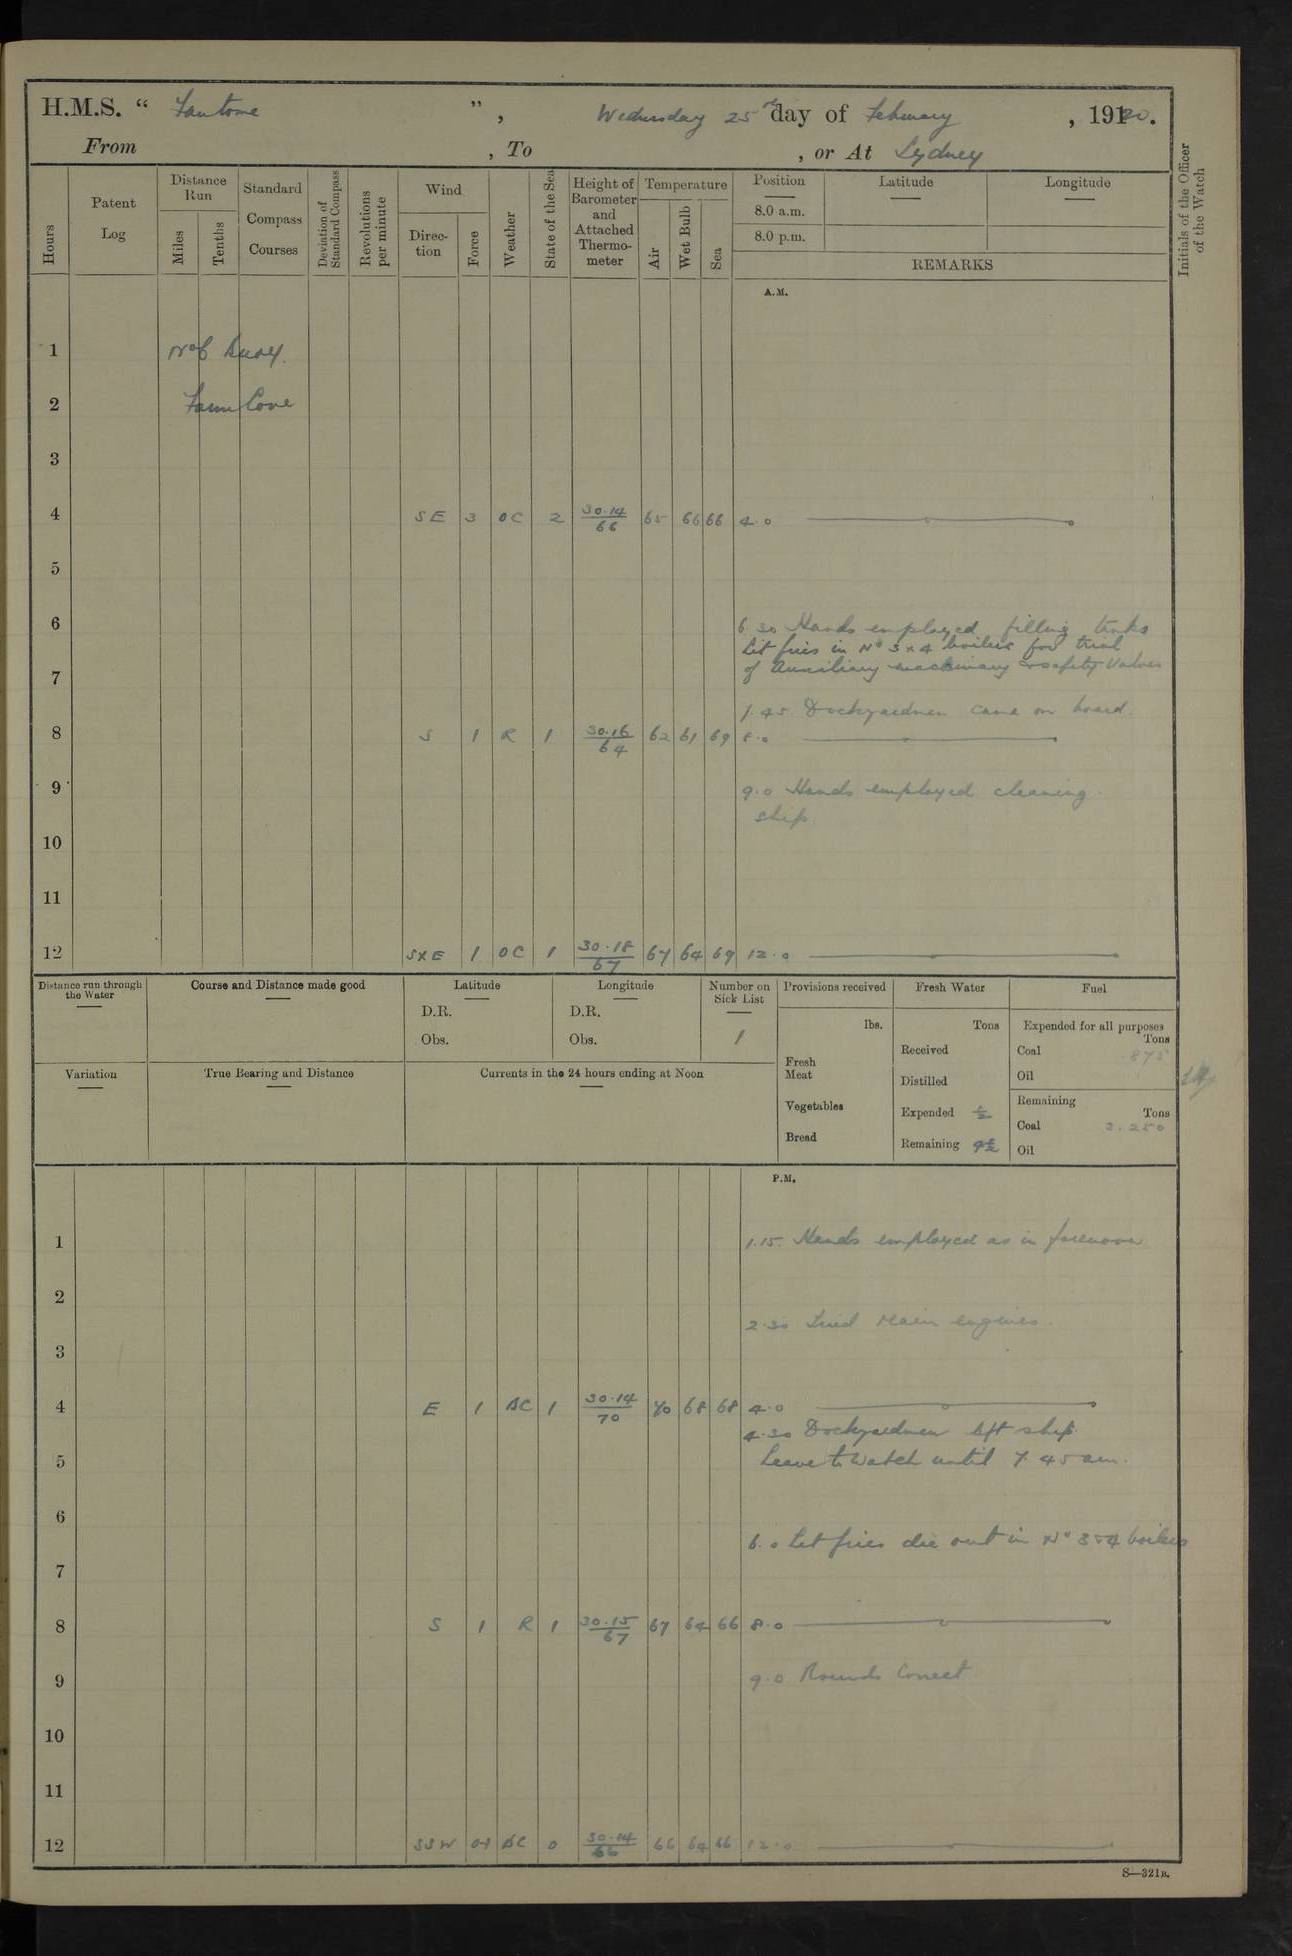 H.M.S. “ Fantome ”, Wednesday 25th day of February, 1920.
From , To , or At Sydney
Hours
Patent Log
Distance Run
Miles
Tenths
Standard Compass Courses
Deviation of Standard Compass
Revolutions per minute
Wind
Direction
Force
Weather
State of the Sea
Height of Barometer and Attached Thermometer
Temperature
Air
Wet Bulb
Sea
Position
Latitude
Longitude
8.0 a.m.
8.0 p.m.
REMARKS
Initials of the Officer of the Watch
A.M.
1 No 6 Buoy.
2 Farm Cove
3
4 SE 3 OC 2 30.14/66 65 66 66 4.0
5
6 6.30 Hands employed filling tanks
Lit fires in No 3 & 4 boilers for trial
7 of Auxiliary machinary & safety valves
7.45. Dockyardmen came on board.
8 S 1 R 1 30.16/64 62 61 69 8.0
9 9.0 Hands employed cleaning
ship.
10
11
12 SXE 1 OC 1 30.18/67 67 64 69 12.0
Distance run through the Water
Course and Distance made good
Latitude
D.R.
Obs.
Longitude
D.R.
Obs.
Number on Sick List
1
Provisions received
lbs.
Fresh Meat
Vegetables
Bread
Fresh Water
Tons
Received
Distilled
Expended ½
Remaining 9½
Fuel
Expended for all purposes
Tons
Coal .875
Oil
Remaining
Tons
Coal 2.250
Oil
Variation
True Bearing and Distance
Currents in the 24 hours ending at Noon
P.M.
1 1.15. Hands employed as in forenoon
2
2.30 Tried Main engines.
3
4 E 1 BC 1 30.14/70 70 68 68 4.0
4.30 Dockyardmen left ship.
5 Leave to Watch until 7.45 am.
6
6.0 Let fires die out in No 3 & 4 boilers
7
8 S 1 R 1 30.15/67 67 64 66 8.0
9 9.0 Rounds Correct
10
11
12 SSW 0-1 BC 0 30.14/66 66 64 66 12.0
S—321B.